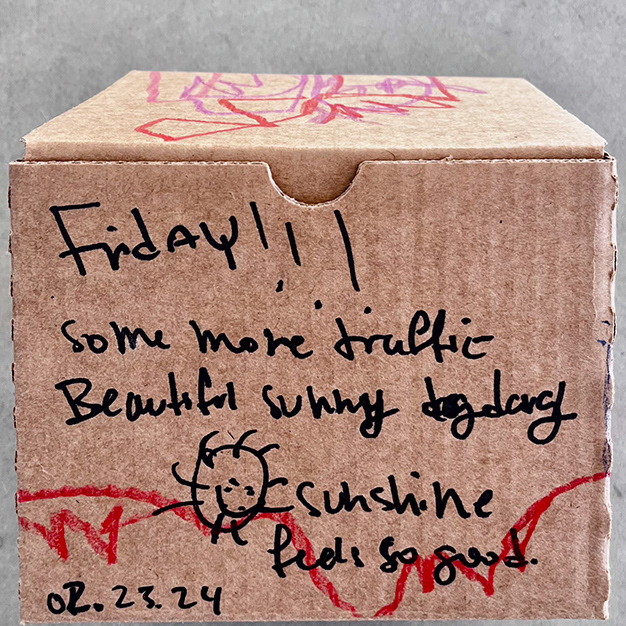 FridAY!!!
some more traffic
Beautiful sunny day
sunshine
feels so good.
02.23.24